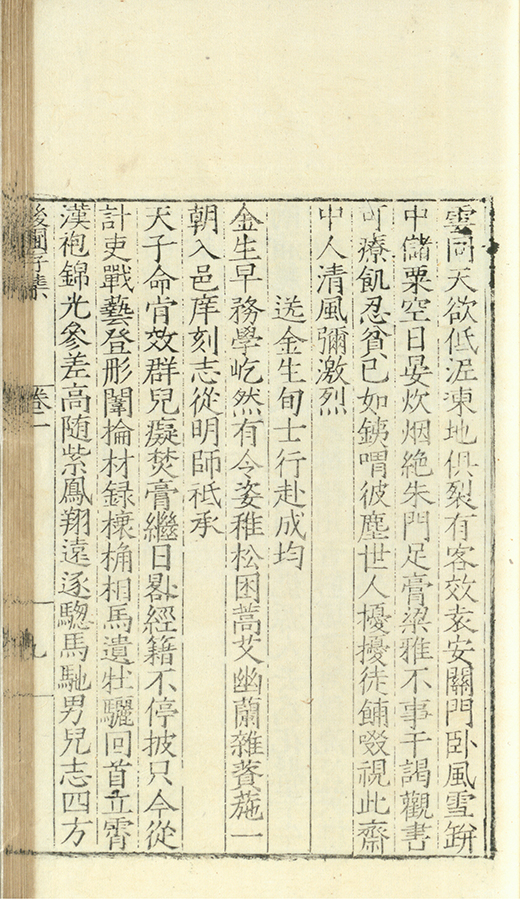 雲同天欲低涯凍地俱裂有客效袁安關門卧風雪缾
中儲粟空日晏炊烟絶朱門足膏粱雅不事干謁觀書
可療飢忍貧已如銕喟彼塵世人擾擾徒餔啜視此齋
中人清風彌激烈
送金生旬士行赴成均
金生早務學屹然有令姿稚松困蒿艾幽蘭雜薋葹一
朝入邑庠刻志從明師祗承
天子命肯效群兒癡焚膏繼日晷經籍不停披只今從
計吏戰藝登彤闈掄材録榱桷相馬遺牡驪回首立霄
漢袍錦光參差高随紫鳳翔遠逐驄馬馳男兒志四方
後圃存集 卷一 九